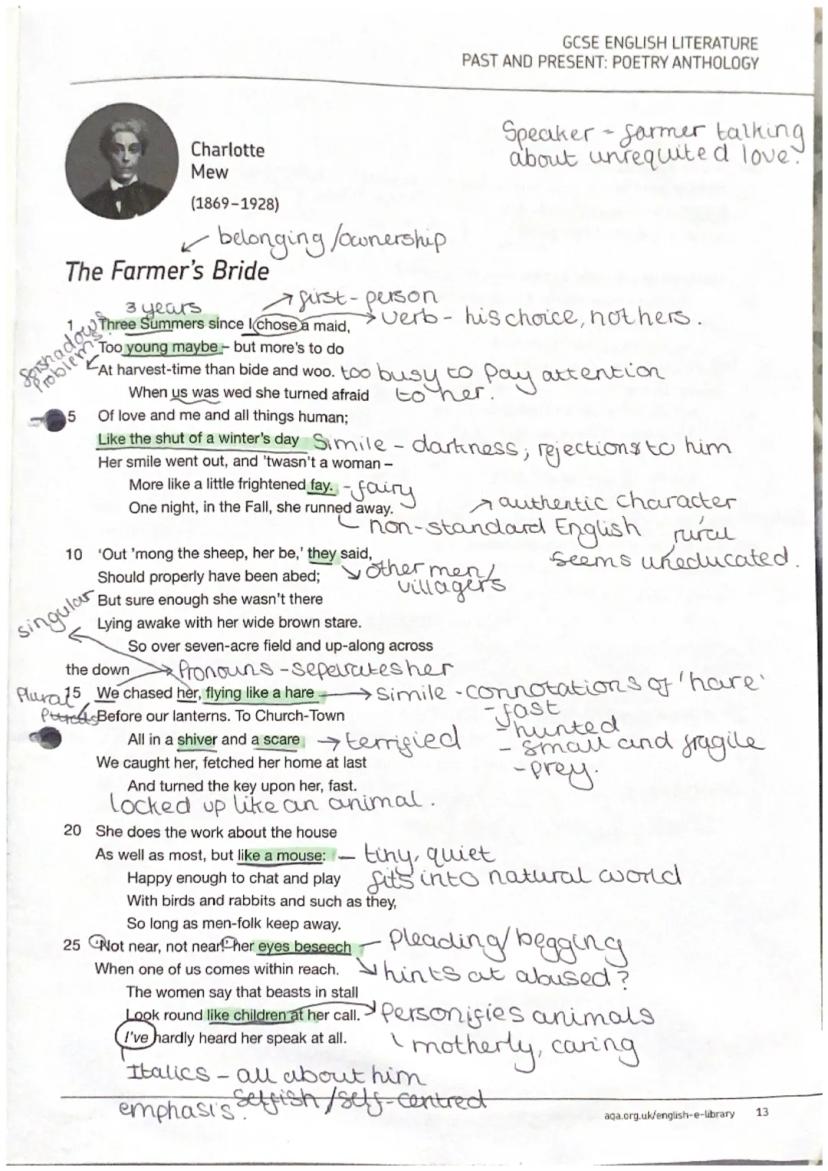 GCSE ENGLISH LITERATURE
PAST AND PRESENT: POETRY ANTHOLOGY
Charlotte
Mew
(1869–1928)
Speaker - farmer talking
about unrequited love.
belonging/ownership
The Farmer's Bride
3 years
first-person
1 Three Summers since I chose a maid,
verb - his choice, not hers.
forshadows
problems
Too young maybe – but more's to do
At harvest-time than bide and woo. too busy to pay attention
When us was wed she turned afraid to her.
5 Of love and me and all things human;
Like the shut of a winter's day Simile - darkness, rejections to him
Her smile went out, and 'twasn't a woman –
More like a little frightened fay. - fairy
One night, in the Fall, she runned away.
authentic character
non-standard English rural
seems uneducated.
10 'Out 'mong the sheep, her be,' they said,
other men/
villagers
Should properly have been abed;
singular But sure enough she wasn't there
Lying awake with her wide brown stare.
So over seven-acre field and up-along across
the down Pronouns - seperates her
Plural 15 We chased her, flying like a hare simile - connotations of 'hare'
Before our lanterns. To Church-Town
- fast
- hunted
All in a shiver and a scare terrified
- small and fragile
- prey.
We caught her, fetched her home at last
And turned the key upon her, fast.
locked up like an animal.
20 She does the work about the house
As well as most, but like a mouse: - tiny, quiet
Happy enough to chat and play fits into natural world
With birds and rabbits and such as they,
So long as men-folk keep away.
25 'Not near, not near!' her eyes beseech - pleading/begging
When one of us comes within reach. hints at abused?
The women say that beasts in stall
Look round like children at her call. Personifies animals
I've hardly heard her speak at all. motherly, caring
Italics - all about him
emphasis. selfish/self-centred
aqa.org.uk/english-e-library 13